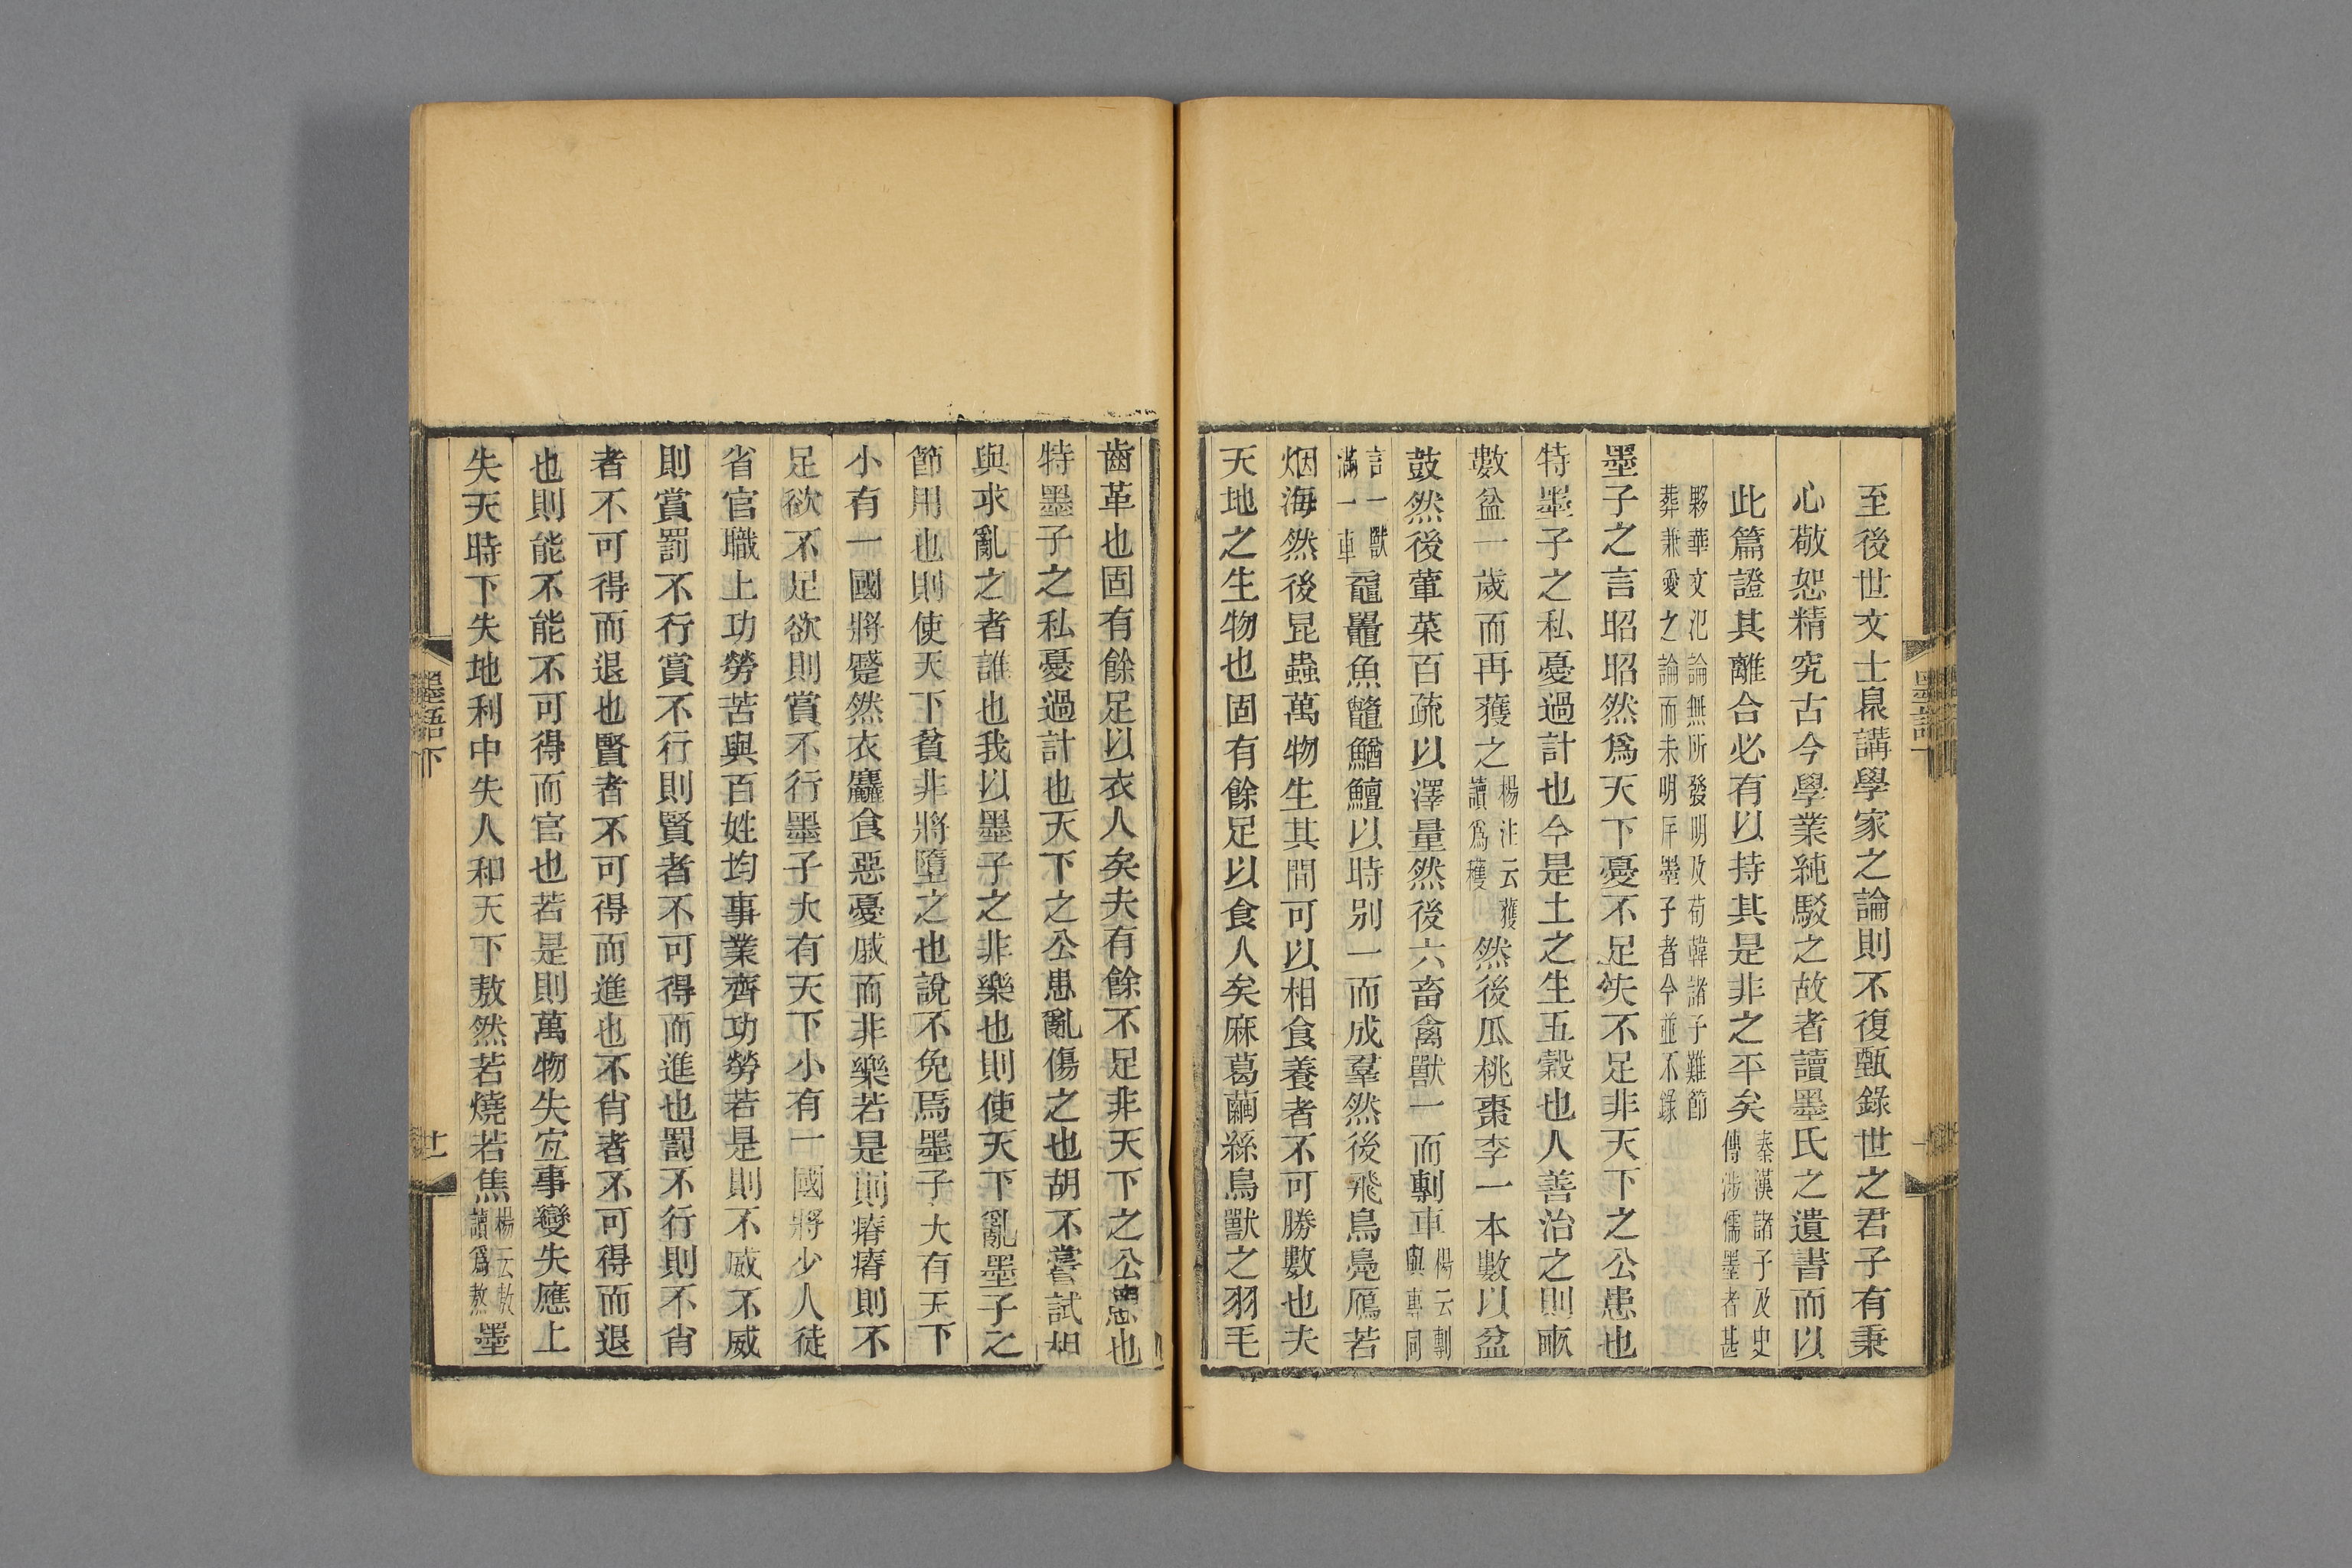 至後世文士衆講學家之論則不復甄錄世之君子有秉
心敬恕精究古今學業純駁之故者讀墨氏之遺書而以
此篇證其離合必有以持其是非之平矣秦漢諸子及史傳涉儒墨者甚
夥華文氾論無所發明及荀韓諸子難節葬兼愛之論而未明斥墨子者今並不錄
墨子之言昭昭然爲天下憂不足夫不足非天下之公患也
特墨子之私憂過計也今是土之生五穀也人善治之則畝
數盆一歲而再獲之楊注云獲讀爲穫然後瓜桃棗李一本數以盆
鼓然後葷菜百疏以澤量然後六畜禽獸一而剸車楊云剸與專同
言一獸滿一車黿鼉魚鼈鰌鱣以時别一而成羣然後飛鳥鳧鴈若
烟海然後昆蟲萬物生其間可以相食養者不可勝數也夫
天地之生物也固有餘足以食人矣麻葛繭絲鳥獸之羽毛
墨語下
齒革也固有餘足以衣人矣夫有餘不足非天下之公患也
特墨子之私憂過計也天下之公患亂傷之也胡不嘗試相
與求亂之者誰也我以墨子之非樂也則使天下亂墨子之
節用也則使天下貧非將墮之也說不免焉墨子大有天下
小有一國將蹙然衣麤食惡憂戚而非樂若是則瘠瘠則不
足欲不足欲則賞不行墨子大有天下小有一國將少人徒
省官職上功勞苦與百姓均事業齊功勞若是則不威不威
則賞罰不行賞不行則賢者不可得而進也罰不行則不肖
者不可得而退也賢者不可得而進也不肖者不可得而退
也則能不能不可得而官也若是則萬物失宜事變失應上
失天時下失地利中失人和天下敖然若燒若焦楊云敖讀爲熬墨
墨語下
廿